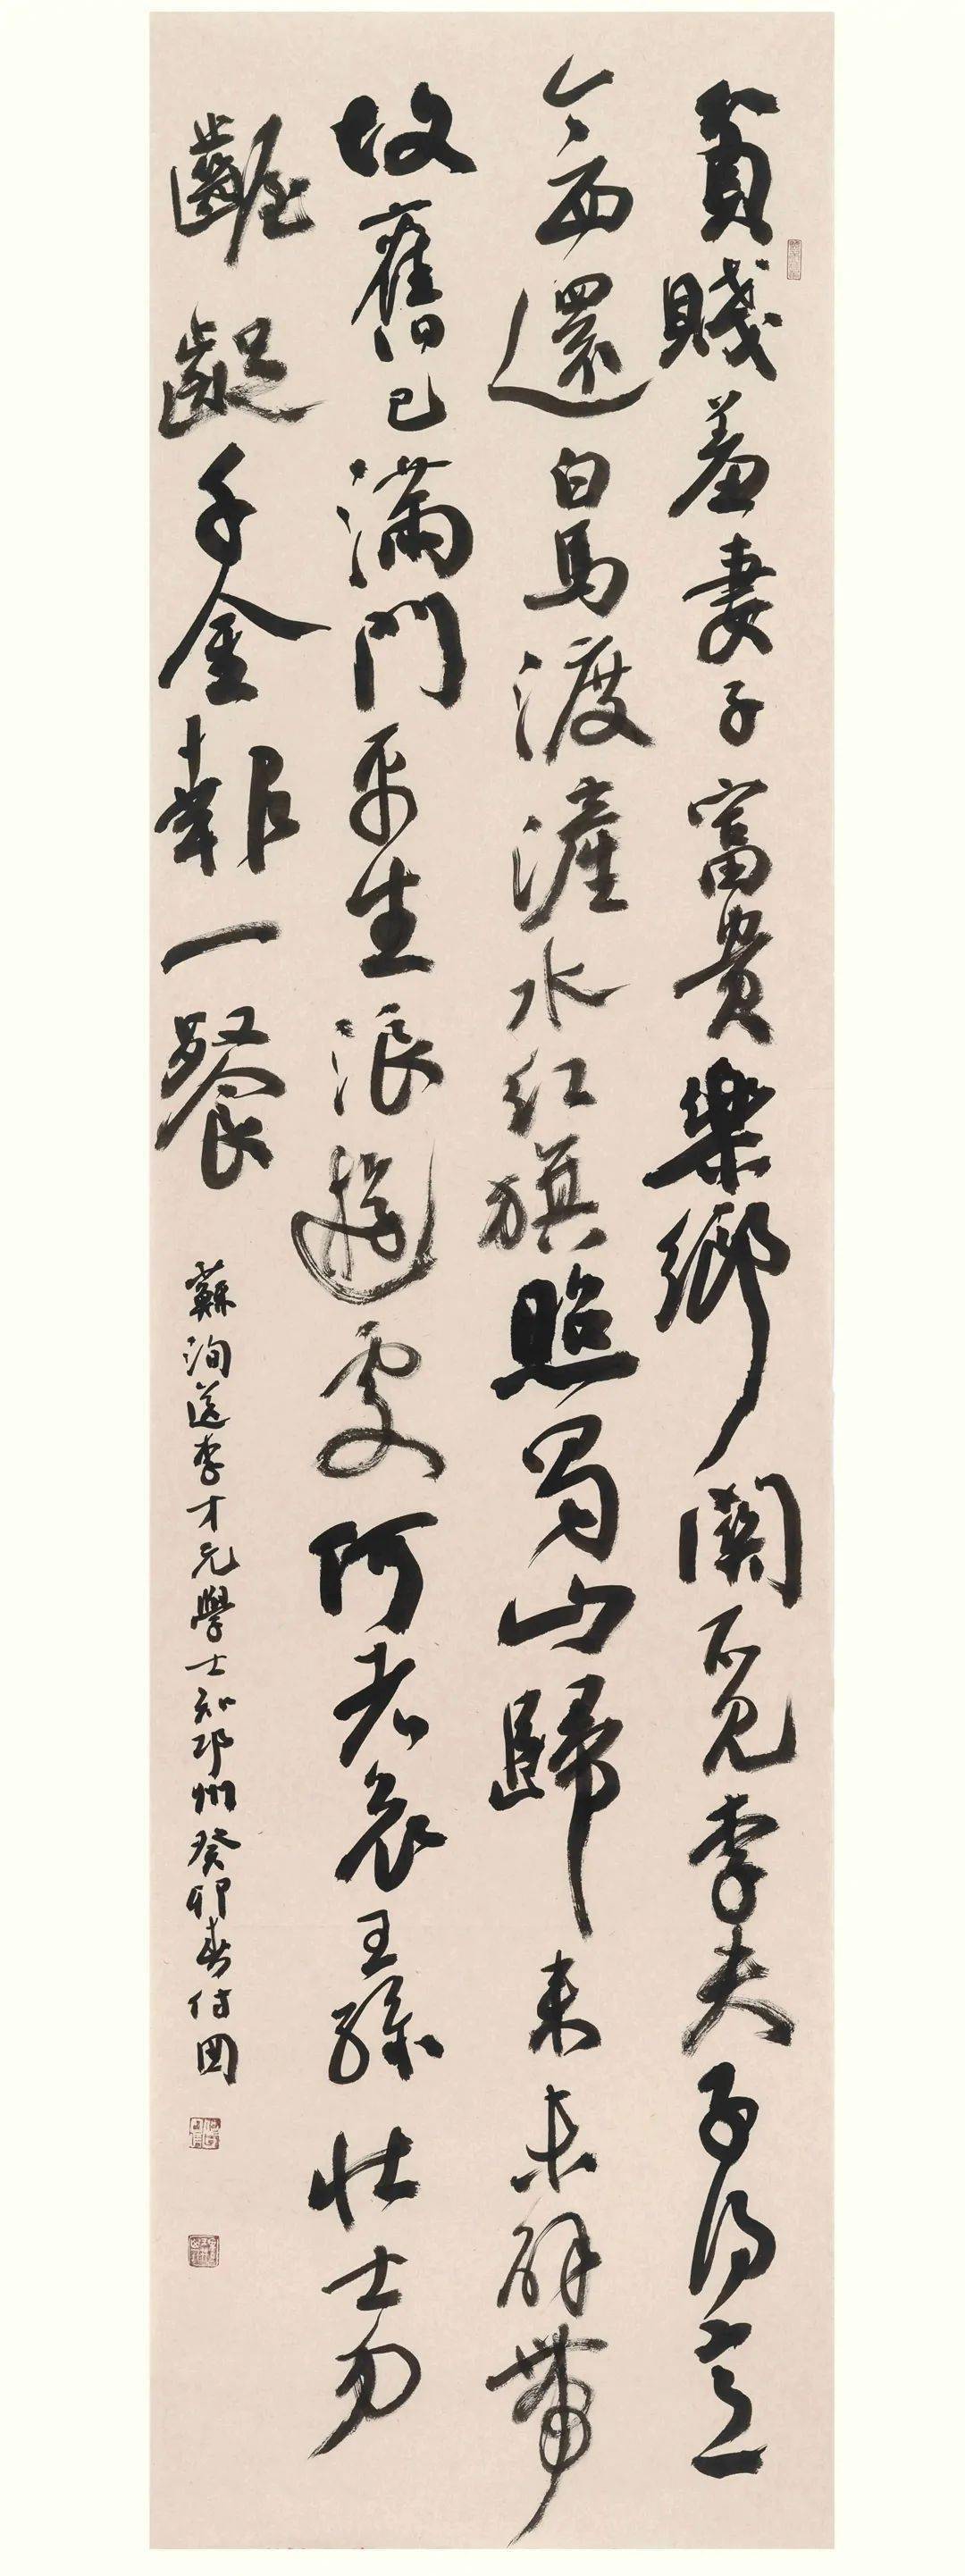 貧賤羞妻子富貴樂鄉關不見李夫子得意
今西還白馬渡滻水紅旗照蜀山歸來未解帶
故舊已滿門平生浪遊處何者哀王孫壯士勿
齷齪千金報一餐
蘇洵送李才元學士知邛州癸卯春付國